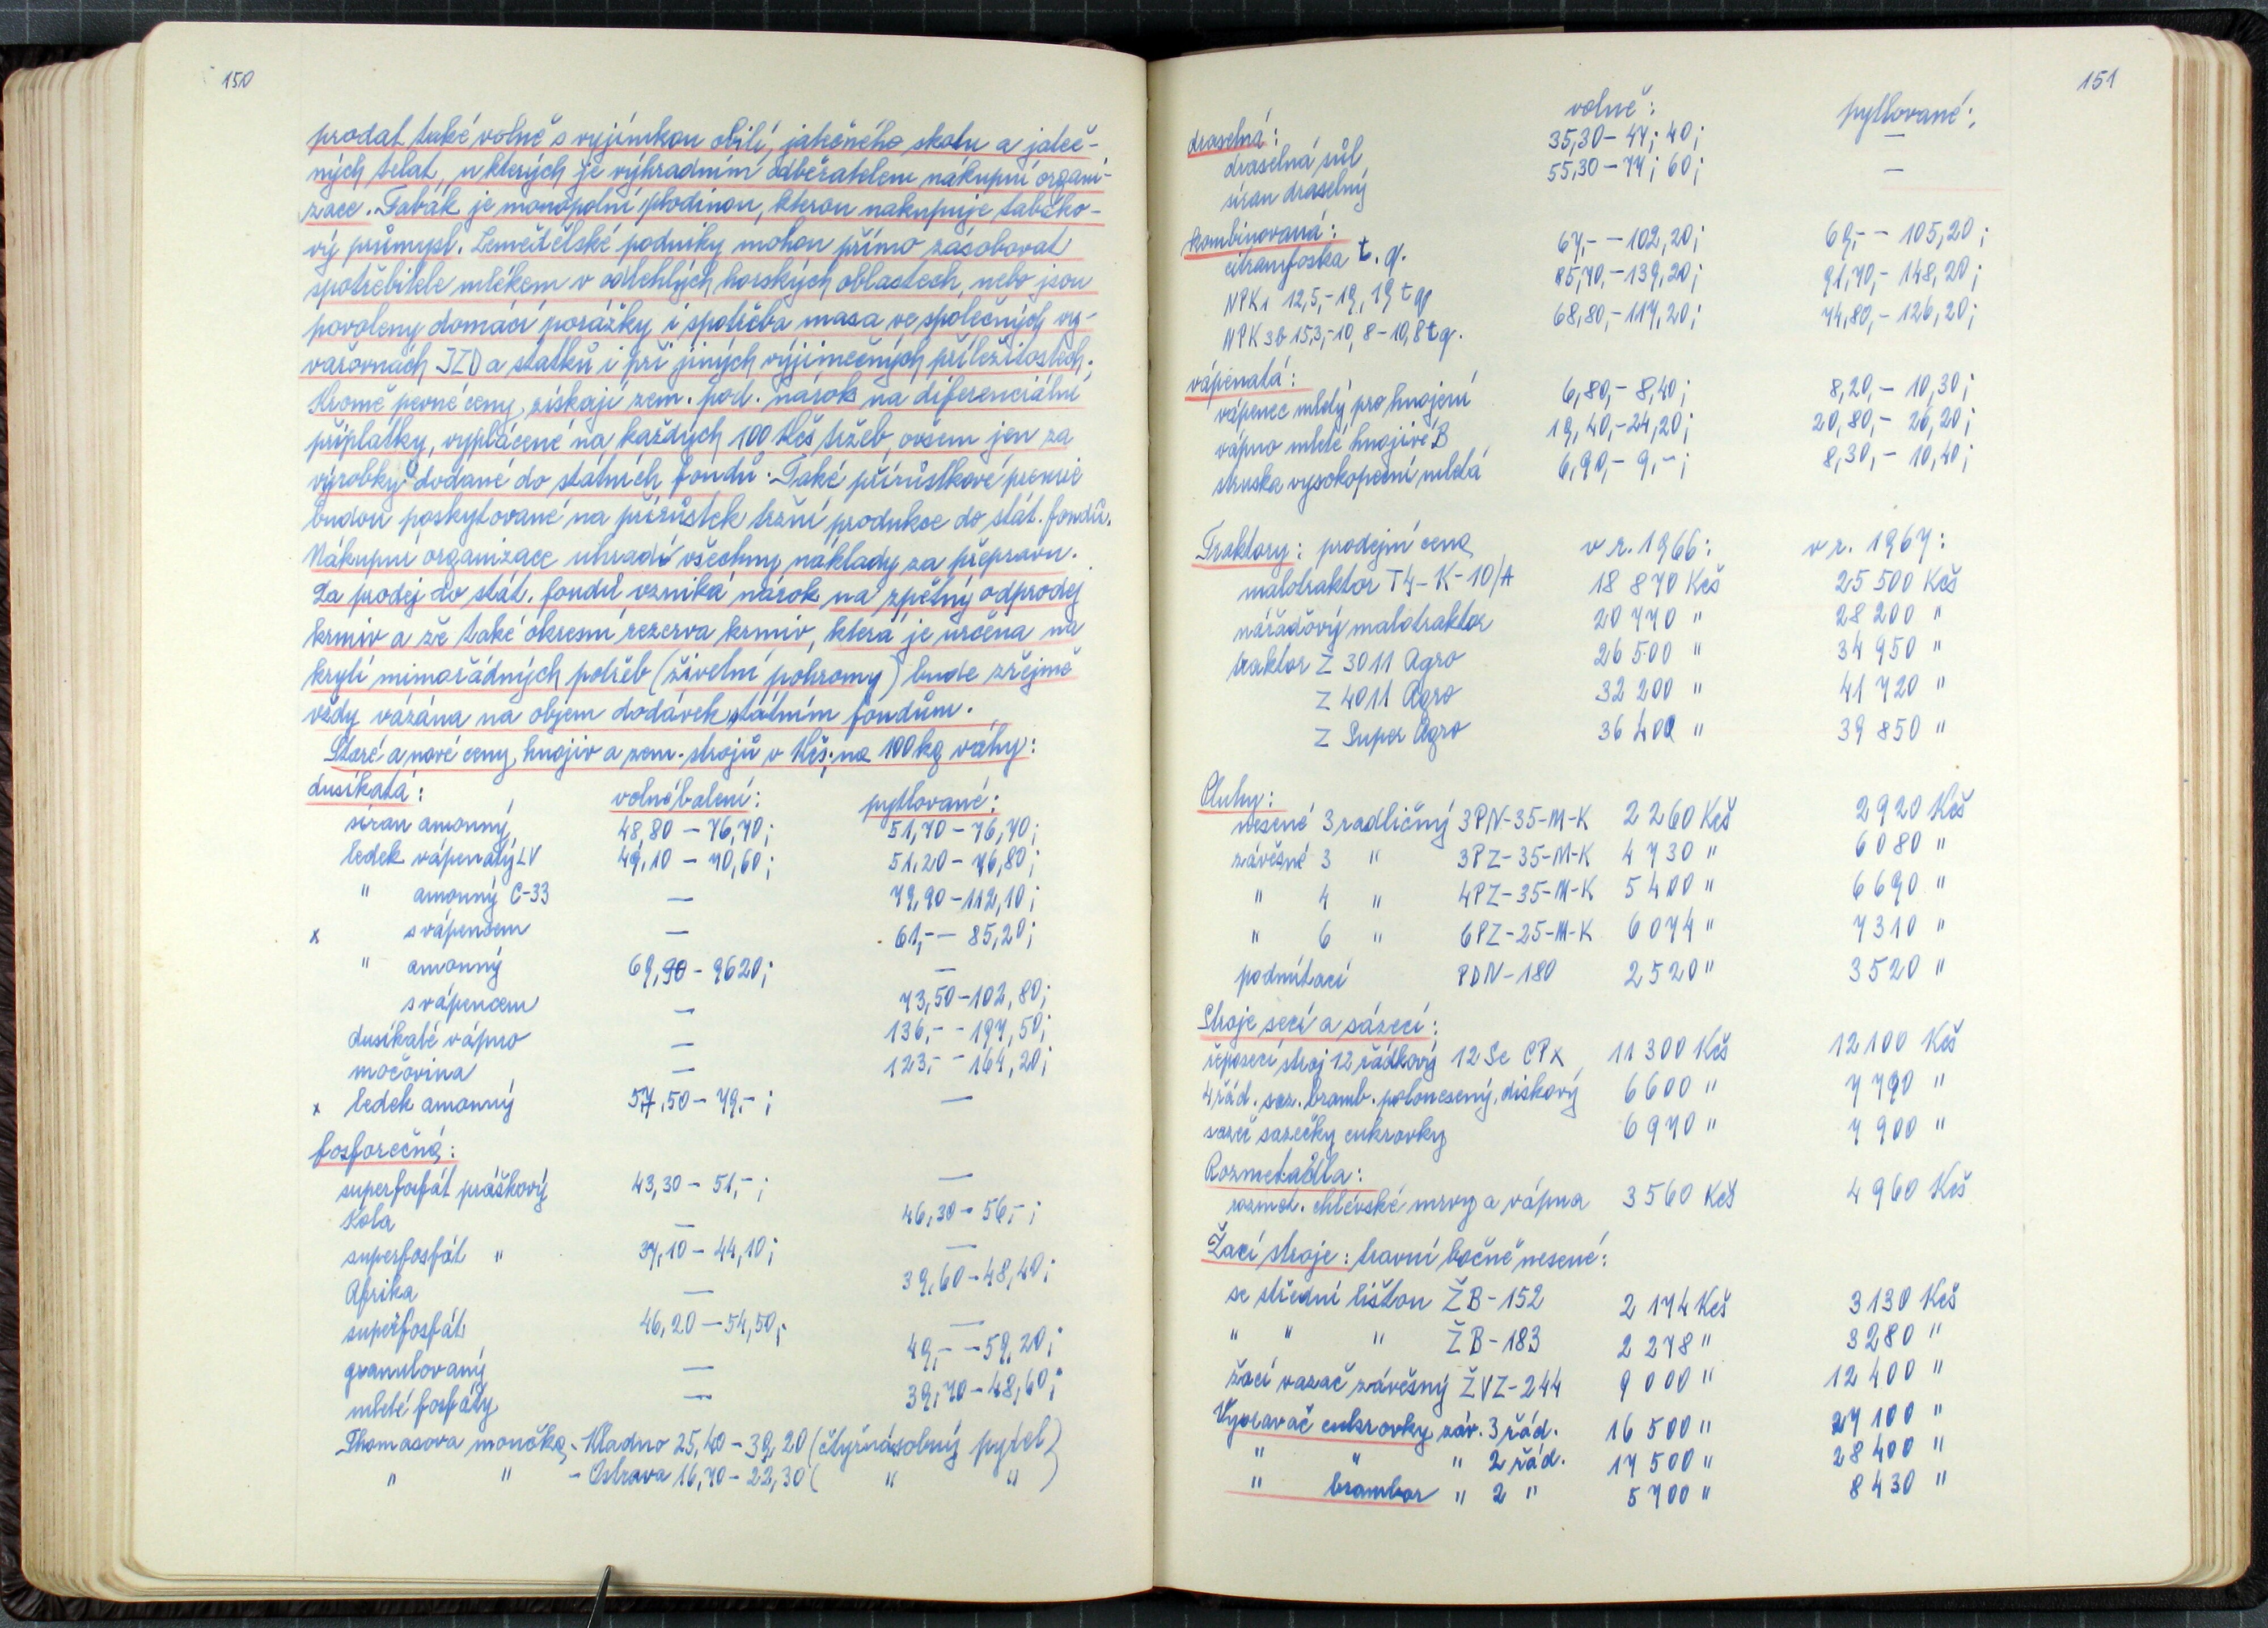 150
prodat také volně s vyjímkou obilí, jatečného skotu a jateč-
ných telat, u kterých je výhradním odběratelem nákupní organi-
zace. Tabák je monopolní plodinou, kterou nakupuje tabáko-
vý průmysl. Zemědělské podniky mohou přímo zásobovat
spotřebitele mlékem v odlehlých horských oblastech, nebo jsou
povoleny domácí porážky i spotřeba masa ve společných vy-
vařovnách JZD a statků i při jiných vyjímečných příležitostech.
Kromě pevné ceny, získají zem. pod. nárok na diferenciální
příplatky, vyplácené na každých 100 Kčs tržeb, ovšem jen za
výrobky dodané do státních fondů. Také přírůstkové premie
budou poskytované na přírůstek tržní produkce do stát. fondů.
Nákupní organizace uhradí všechny náklady za přepravu.
Za prodej do stát. fondů vzniká nárok na zpětný odprodej
krmiv a že také okresní rezerva krmiv, která je určena na
krytí mimořádných potřeb (živelní pohromy) bude zřejmě
vždy vázána na objem dodávek státním fondům.
Staré a nové ceny hnojiv a zem. strojů v Kčs, na 100 kg váhy:
dusíkatá: volné balení: pytlované:
síran amonný 48,80 – 76,70; 51,70 – 76,70;
ledek vápenatý LV 49,10 – 70,60; 51.20 – 76,80;
" amonný C-33 — 79,90 – 112,10;
x s vápencem — 61,- – 85,20;
" amonný 69,90 – 9620; —
s vápencem — 73,50 – 102,80;
dusíkaté vápno — 136,- – 197,50;
močovina — 123,- – 164,20;
x ledek amonný 57.50 – 79,-; —
fosforečná:
superfosfát práškový 43,30 – 51,-; —
Kola — 46,30 – 56,-;
superfosfát " 37,10 – 44,10; —
Afrika — 39,60 – 48,40;
superfosfát 46,20 – 54,50; —
granulovaný — 49,- – 59,20;
mleté fosfáty — 39,70 – 48,60;
Thomasova moučka, - Kladno 25,40 – 39,20 (čtyřnásobný pytel)
" " - Ostrava 16,70 – 22,30 ( " " )
151
volně: pytlované:
draselná:
draselná sůl 35,30 – 47; 40; —
síran draselný 55,30 – 77; 60; —
kombinovaná:
citramfoska t. q. 67,- – 102,20; 69,- – 105,20;
NPK1 12,5,-19, 19 t q 85,70,- 139,20; 91,70,- 148,20;
NPK 3b 15,3,-10, 8-10,8 t q. 68,80,- 117,20; 74,80,- 126,20;
vápenatá:
vápenec mletý pro hnojení 6,80,- 8,40; 8,20,- 10,30;
vápno mleté hnojivé B 19,40,- 24,20; 20,80,- 26,20;
struska vysokopecní mletá 6,90,- 9,-; 8,30,- 10,40;
Traktory: prodejní cena v r. 1966: v r. 1967:
malotraktor T4-K-10/A 18 870 Kčs 25 500 Kčs
nářaďový malotraktor 20 770 " 28 200 "
traktor Z 3011 Agro 26 500 " 34 950 "
Z 4011 Agro 32 200 " 41 720 "
Z Super Agro 36 400 " 39 850 "
Pluhy:
nesené 3 radličný 3PN-35-M-K 2 260 Kčs 2 920 Kčs
závěsné 3 " 3PZ-35-M-K 4 730 " 6 080 "
" 4 " 4PZ-35-M-K 5 400 " 6 690 "
" 6 " 6PZ-25-M-K 6 074 " 7 310 "
podmítací PDN-180 2 520 " 3 520 "
Stroje secí a sázecí:
řeposecí stroj 12 řádkový 12 Se CPX 11 300 Kčs 12 100 Kčs
4 řád. saz. bramb. polonesený, diskový 6 600 " 7 790 "
sazeč sazečky cukrovky 6 970 " 7 900 "
Rozmetadla:
rozmet. chlévské mrvy a vápna 3 560 Kčs 4 960 Kčs
Žací stroje: travní bočně nesené:
se střední lištou ŽB-152 2 174 Kčs 3 130 Kčs
" " " ŽB-183 2 278 " 3 280 "
žací vazač závěsný ŽVZ-244 9 000 " 12 400 "
Vyoravač cukrovky záv. 3 řád. 16 500 " 27 100 "
" " " 2 řád. 17 500 " 28 400 "
" brambor " 2 " 5 700 " 8 430 "